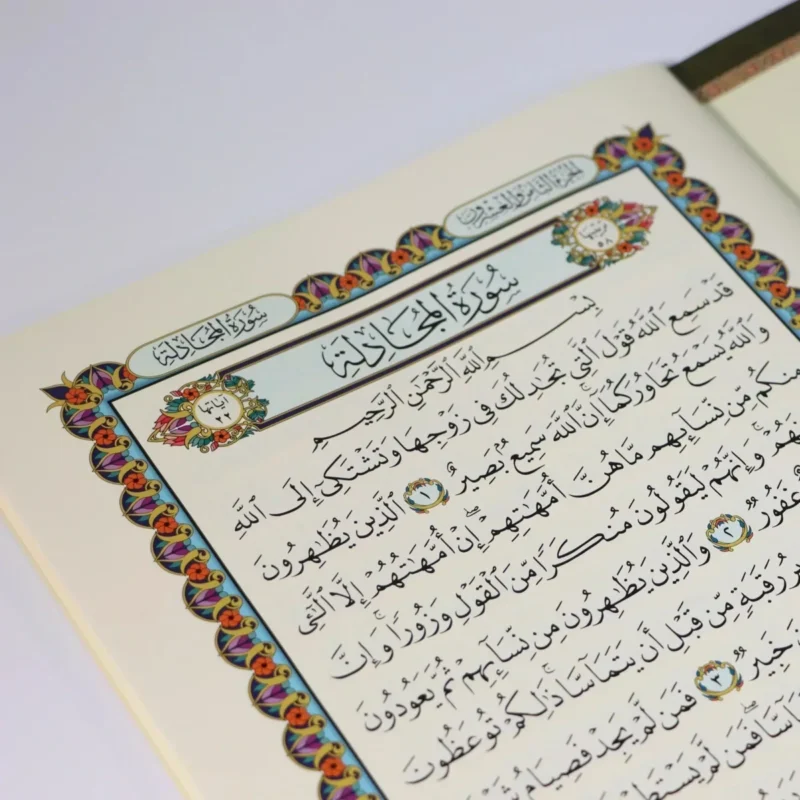 سُورَةُ المُجَادلَةِ
الجُزْءُ الثَّامِنُ وَالعِشْرُونَ
ترتيبها ٥٨
سُورَةُ المُجَادلَةِ
آياتها ٢٢
بِسْمِ ٱللَّهِ ٱلرَّحْمَٰنِ ٱلرَّحِيمِ
قَدْ سَمِعَ ٱللَّهُ قَوْلَ ٱلَّتِى تُجَٰدِلُكَ فِى زَوْجِهَا وَتَشْتَكِىٓ إِلَى ٱللَّهِ
وَٱللَّهُ يَسْمَعُ تَحَاوُرَكُمَآ إِنَّ ٱللَّهَ سَمِيعٌۢ بَصِيرٌ ١ ٱلَّذِينَ يُظَٰهِرُونَ
مِنكُم مِّن نِّسَآئِهِم مَّا هُنَّ أُمَّهَٰتِهِمْ إِنْ أُمَّهَٰتُهُمْ إِلَّا ٱلَّٰٓـِٔى
وَإِنَّهُمْ لَيَقُولُونَ مُنكَرًا مِّنَ ٱلْقَوْلِ وَزُورًا وَإِنَّ
غَفُورٌ ٢ وَٱلَّذِينَ يُظَٰهِرُونَ مِن نِّسَآئِهِمْ ثُمَّ يَعُودُونَ
رَقَبَةٍ مِّن قَبْلِ أَن يَتَمَآسَّا ذَٰلِكُمْ تُوعَظُونَ
خَبِيرٌ ٣ فَمَن لَّمْ يَجِدْ فَصِيَامُ
فَمَن لَّمْ